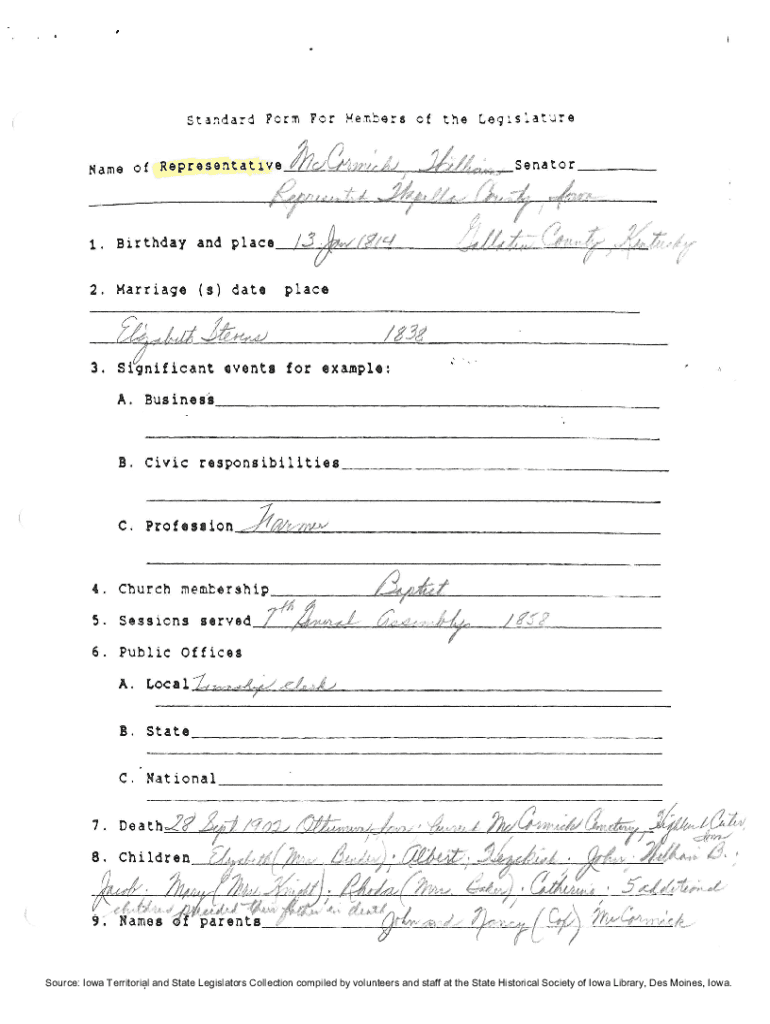 Standard Form For Members of the Legislature
Name of Representative McCormick, William Senator
Represented Wapello County, Iowa
1. Birthday and place 13 Jan 1814 Gallatin County, Kentucky
2. Marriage (s) date place
Elizabeth Stevens 1838
3. Significant events for example:
A. Business
B. Civic responsibilities
C. Profession Farmer
4. Church membership Baptist
5. Sessions served 7th General Assembly 1858
6. Public Offices
A. Local Township clerk
B. State
C. National
7. Death 28 Sept 1902 Ottumwa, Iowa. buried McCormick Cemetery, Highland Center, Iowa
8. Children Elizabeth (Mrs. Bender); Albert; Hezekiah; John; William B.;
Jacob; Mary (Mrs. Knight); Rhoda (Mrs. Baker); Catherine; 5 additional
children preceded their father in death
9. Names of parents John and Nancy (Cox) McCormick
Source: Iowa Territorial and State Legislators Collection compiled by volunteers and staff at the State Historical Society of Iowa Library, Des Moines, Iowa.